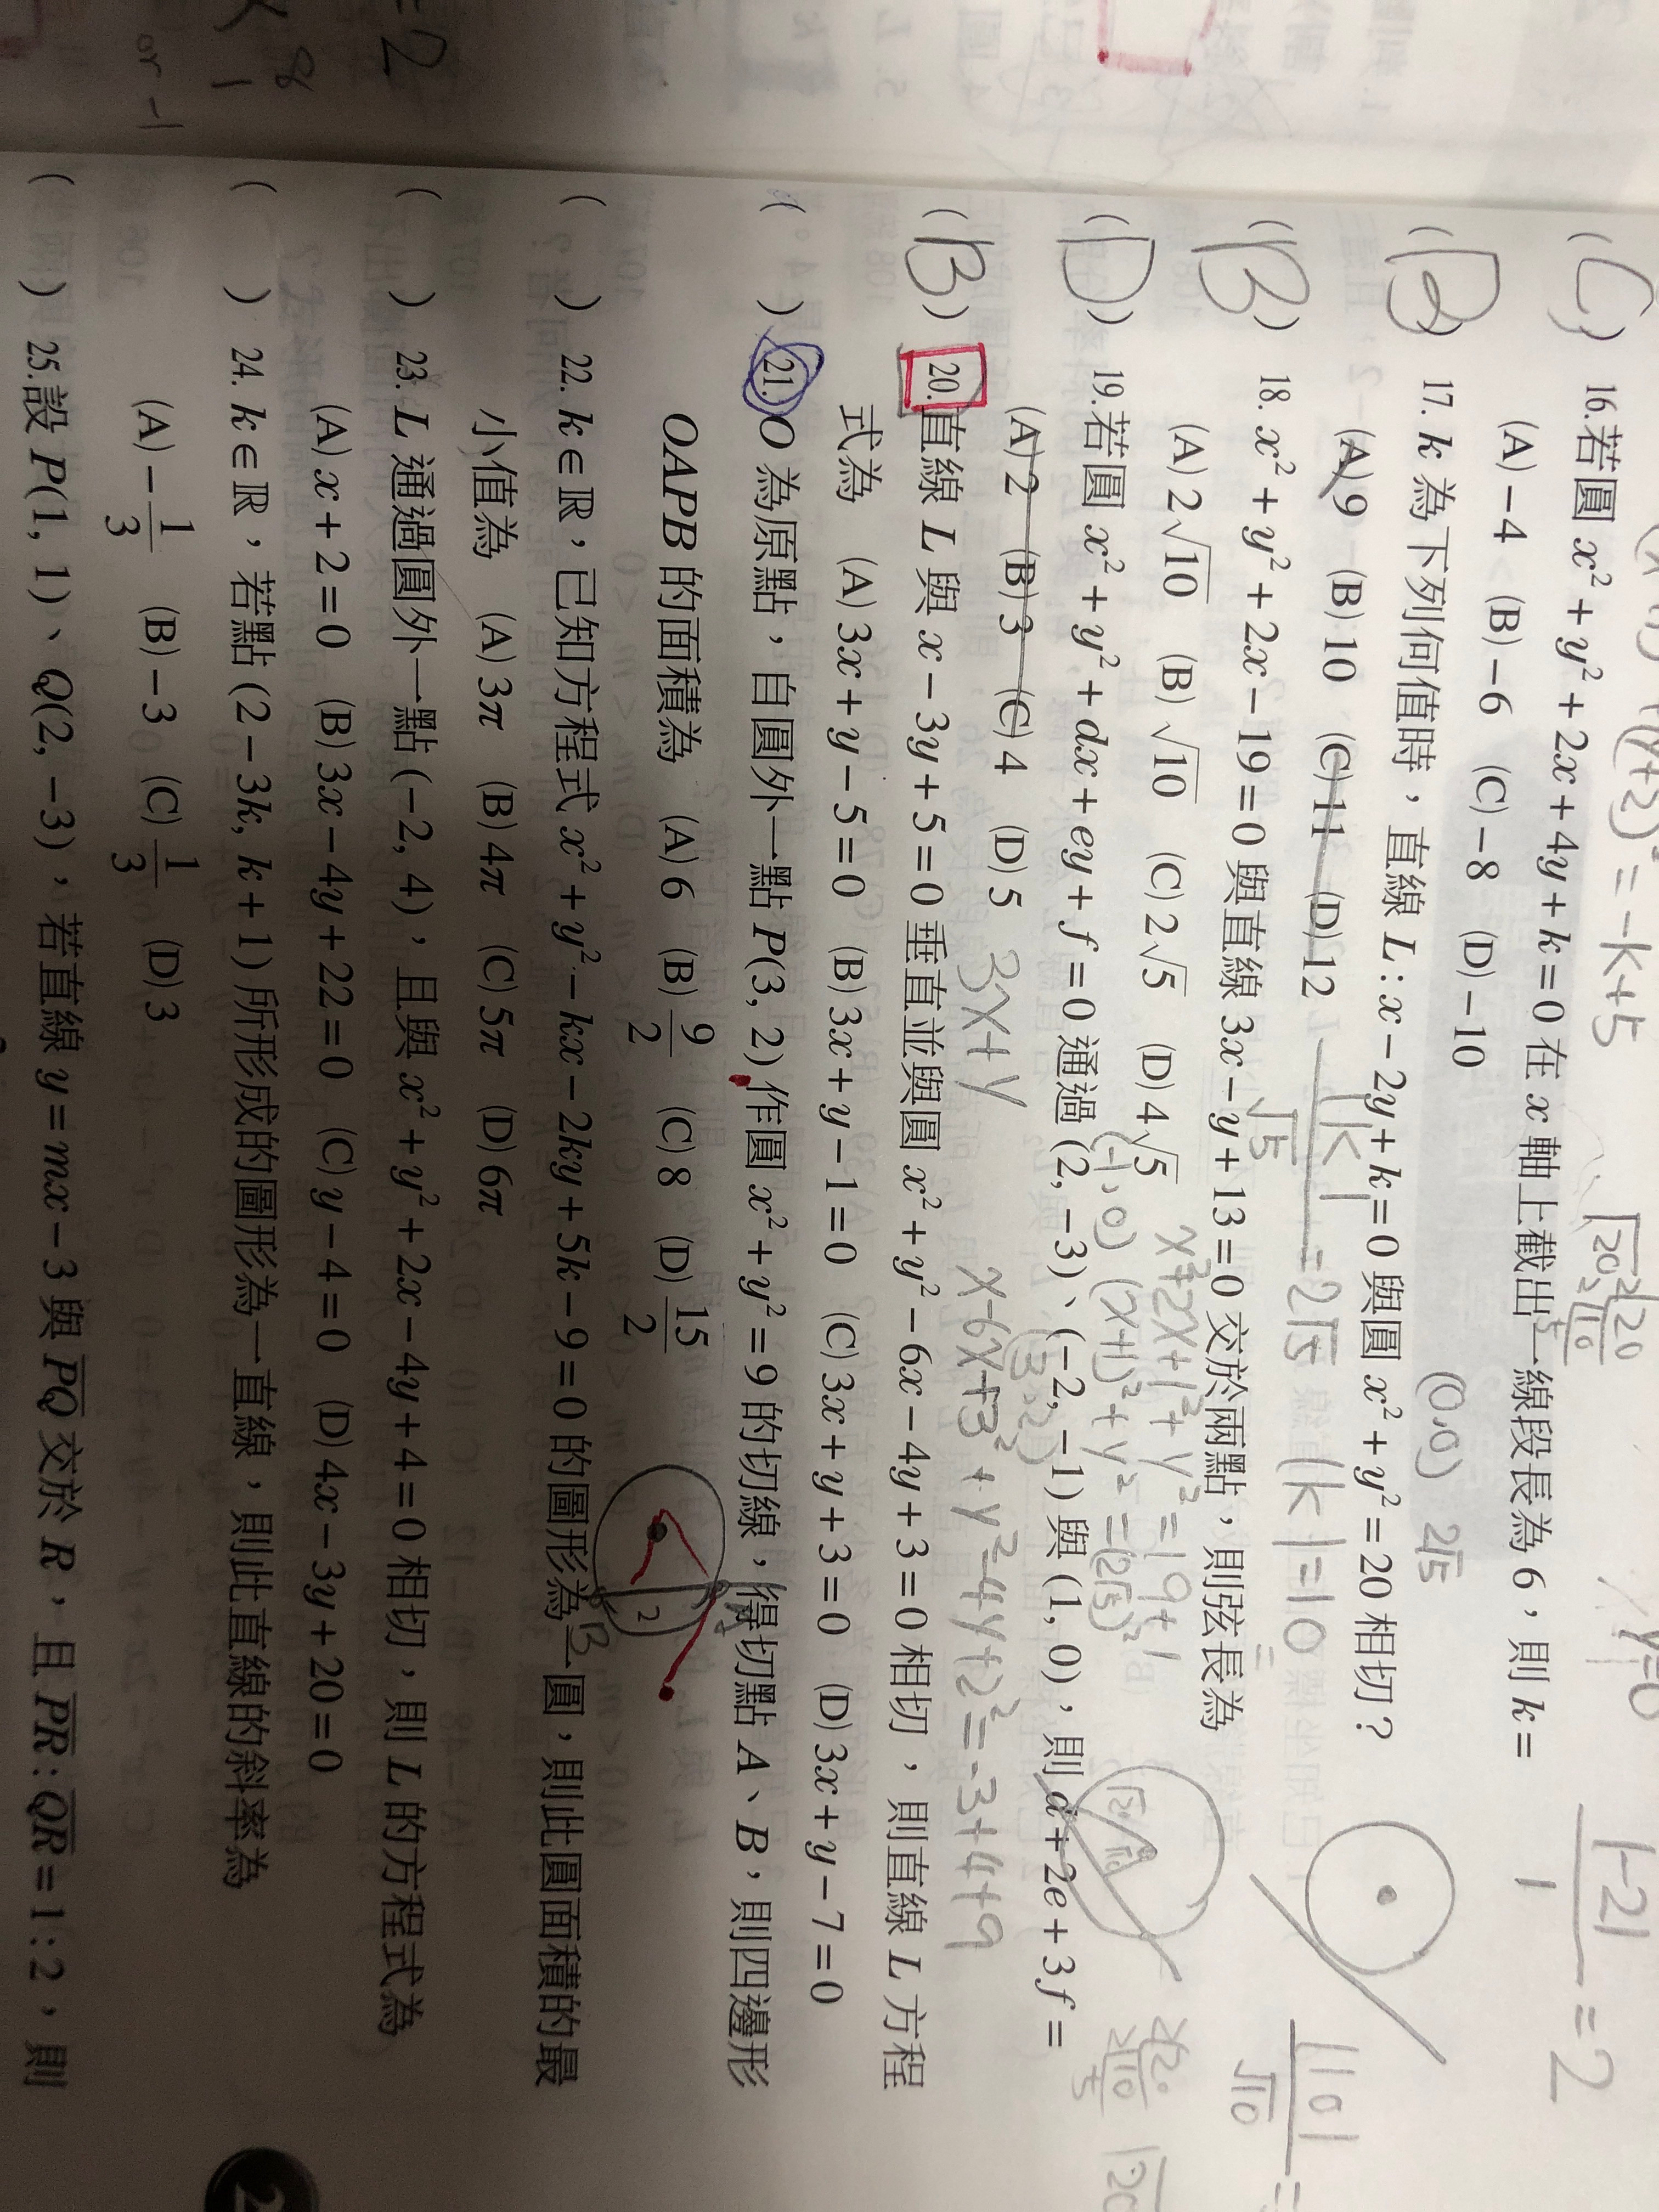 (x+1)²+(y+2)²=-k+5
(C) 16.若圓 x²+y²+2x+4y+k=0 在 x 軸上截出一線段長為 6，則 k=
(A)-4 (B)-6 (C)-8 (D)-10
|-2| / 1 = 2
(B) 17. k 為下列何值時，直線 L：x-2y+k=0 與圓 x²+y²=20 相切？
(0,0) 2√5
(A)9 (B)10 (C)11 (D)12
|k| / √5 = 2√5 |k|=10
(B) 18. x²+y²+2x-19=0 與直線 3x-y+13=0 交於兩點，則弦長為
(A)2√10 (B)√10 (C)2√5 (D)4√5
x²+2x+1²+y²=19+1
(-1,0) (x+1)²+y²=(2√5)²
|10| / √10 =
(D) 19.若圓 x²+y²+dx+ey+f=0 通過 (2, -3)、(-2, -1) 與 (1, 0)，則 d+2e+3f=
(A)2 (B)3 (C)4 (D)5
3x+y
x-6x+3²+y²-4y+2²=-3+4+9
(3,2)
(B) 20.直線 L 與 x-3y+5=0 垂直並與圓 x²+y²-6x-4y+3=0 相切，則直線 L 方程
式為 (A)3x+y-5=0 (B)3x+y-1=0 (C)3x+y+3=0 (D)3x+y-7=0
( ) 21. O 為原點，自圓外一點 P(3, 2) 作圓 x²+y²=9 的切線，得切點 A、B，則四邊形
OAPB 的面積為 (A)6 (B)9/2 (C)8 (D)15/2
2
B
( ) 22. k∈ℝ，已知方程式 x²+y²-kx-2ky+5k-9=0 的圖形為一圓，則此圓面積的最
小值為 (A)3π (B)4π (C)5π (D)6π
( ) 23. L 通過圓外一點 (-2, 4)，且與 x²+y²+2x-4y+4=0 相切，則 L 的方程式為
(A)x+2=0 (B)3x-4y+22=0 (C)y-4=0 (D)4x-3y+20=0
( ) 24. k∈ℝ，若點 (2-3k, k+1) 所形成的圖形為一直線，則此直線的斜率為
(A)-1/3 (B)-3 (C)1/3 (D)3
( ) 25.設 P(1, 1)、Q(2, -3)，若直線 y=mx-3 與 PQ 交於 R，且 PR：QR=1：2，則
=2
8
1
or -1
2